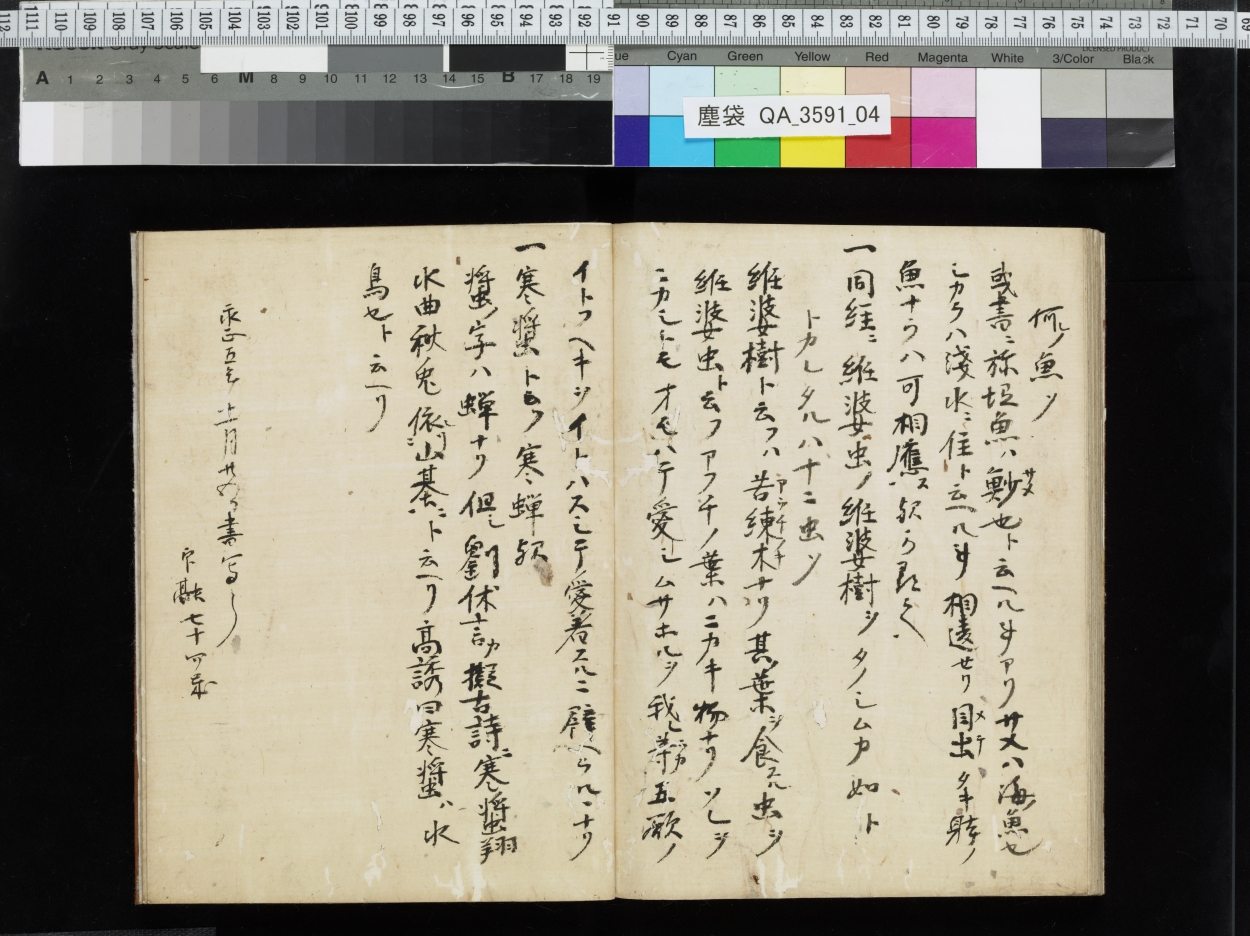 塵袋 QA_3591_04
何レノ魚ソ
或書ニ㫋垣魚ハ魦也ト云ヘル事アリ サメハ海魚也
シカラハ浅水ニ住ト云ヘル事相違セリ 目出タキ時ノ
魚ナラハ可相應ス歟
一 同経ニ 維婆虫ノ維婆樹シタノシムカ如ト
トカレタルハナニ虫ソ
維婆樹ト云フハ苦練木ナリ 其葉シ食スル虫シ
維婆虫ト云フ アフチノ葉ハニカキ物ナリ ソレシ
ニカシトモオモハテ愛シムサホルシ我レ等五欲ノ
イトフヘキシイトハスシテ愛着スルニ譬ヘラルヽナリ
一 寒螿トハ云フ 寒蝉歟
螿ノ字ハ蝉ナリ 但シ劉休言カ擬古詩ニ寒螿翔
水曲秋兎依山基ト云ヘリ 高誘曰寒螿ハ水
鳥也ト云ヘリ
永正五年 十一月 書写了
印融 七十四歳
A 1 2 3 4 5 6 M 8 9 10 11 12 13 14 15 B 17 18 19
Cyan Green Yellow Red Magenta White 3/Color Black